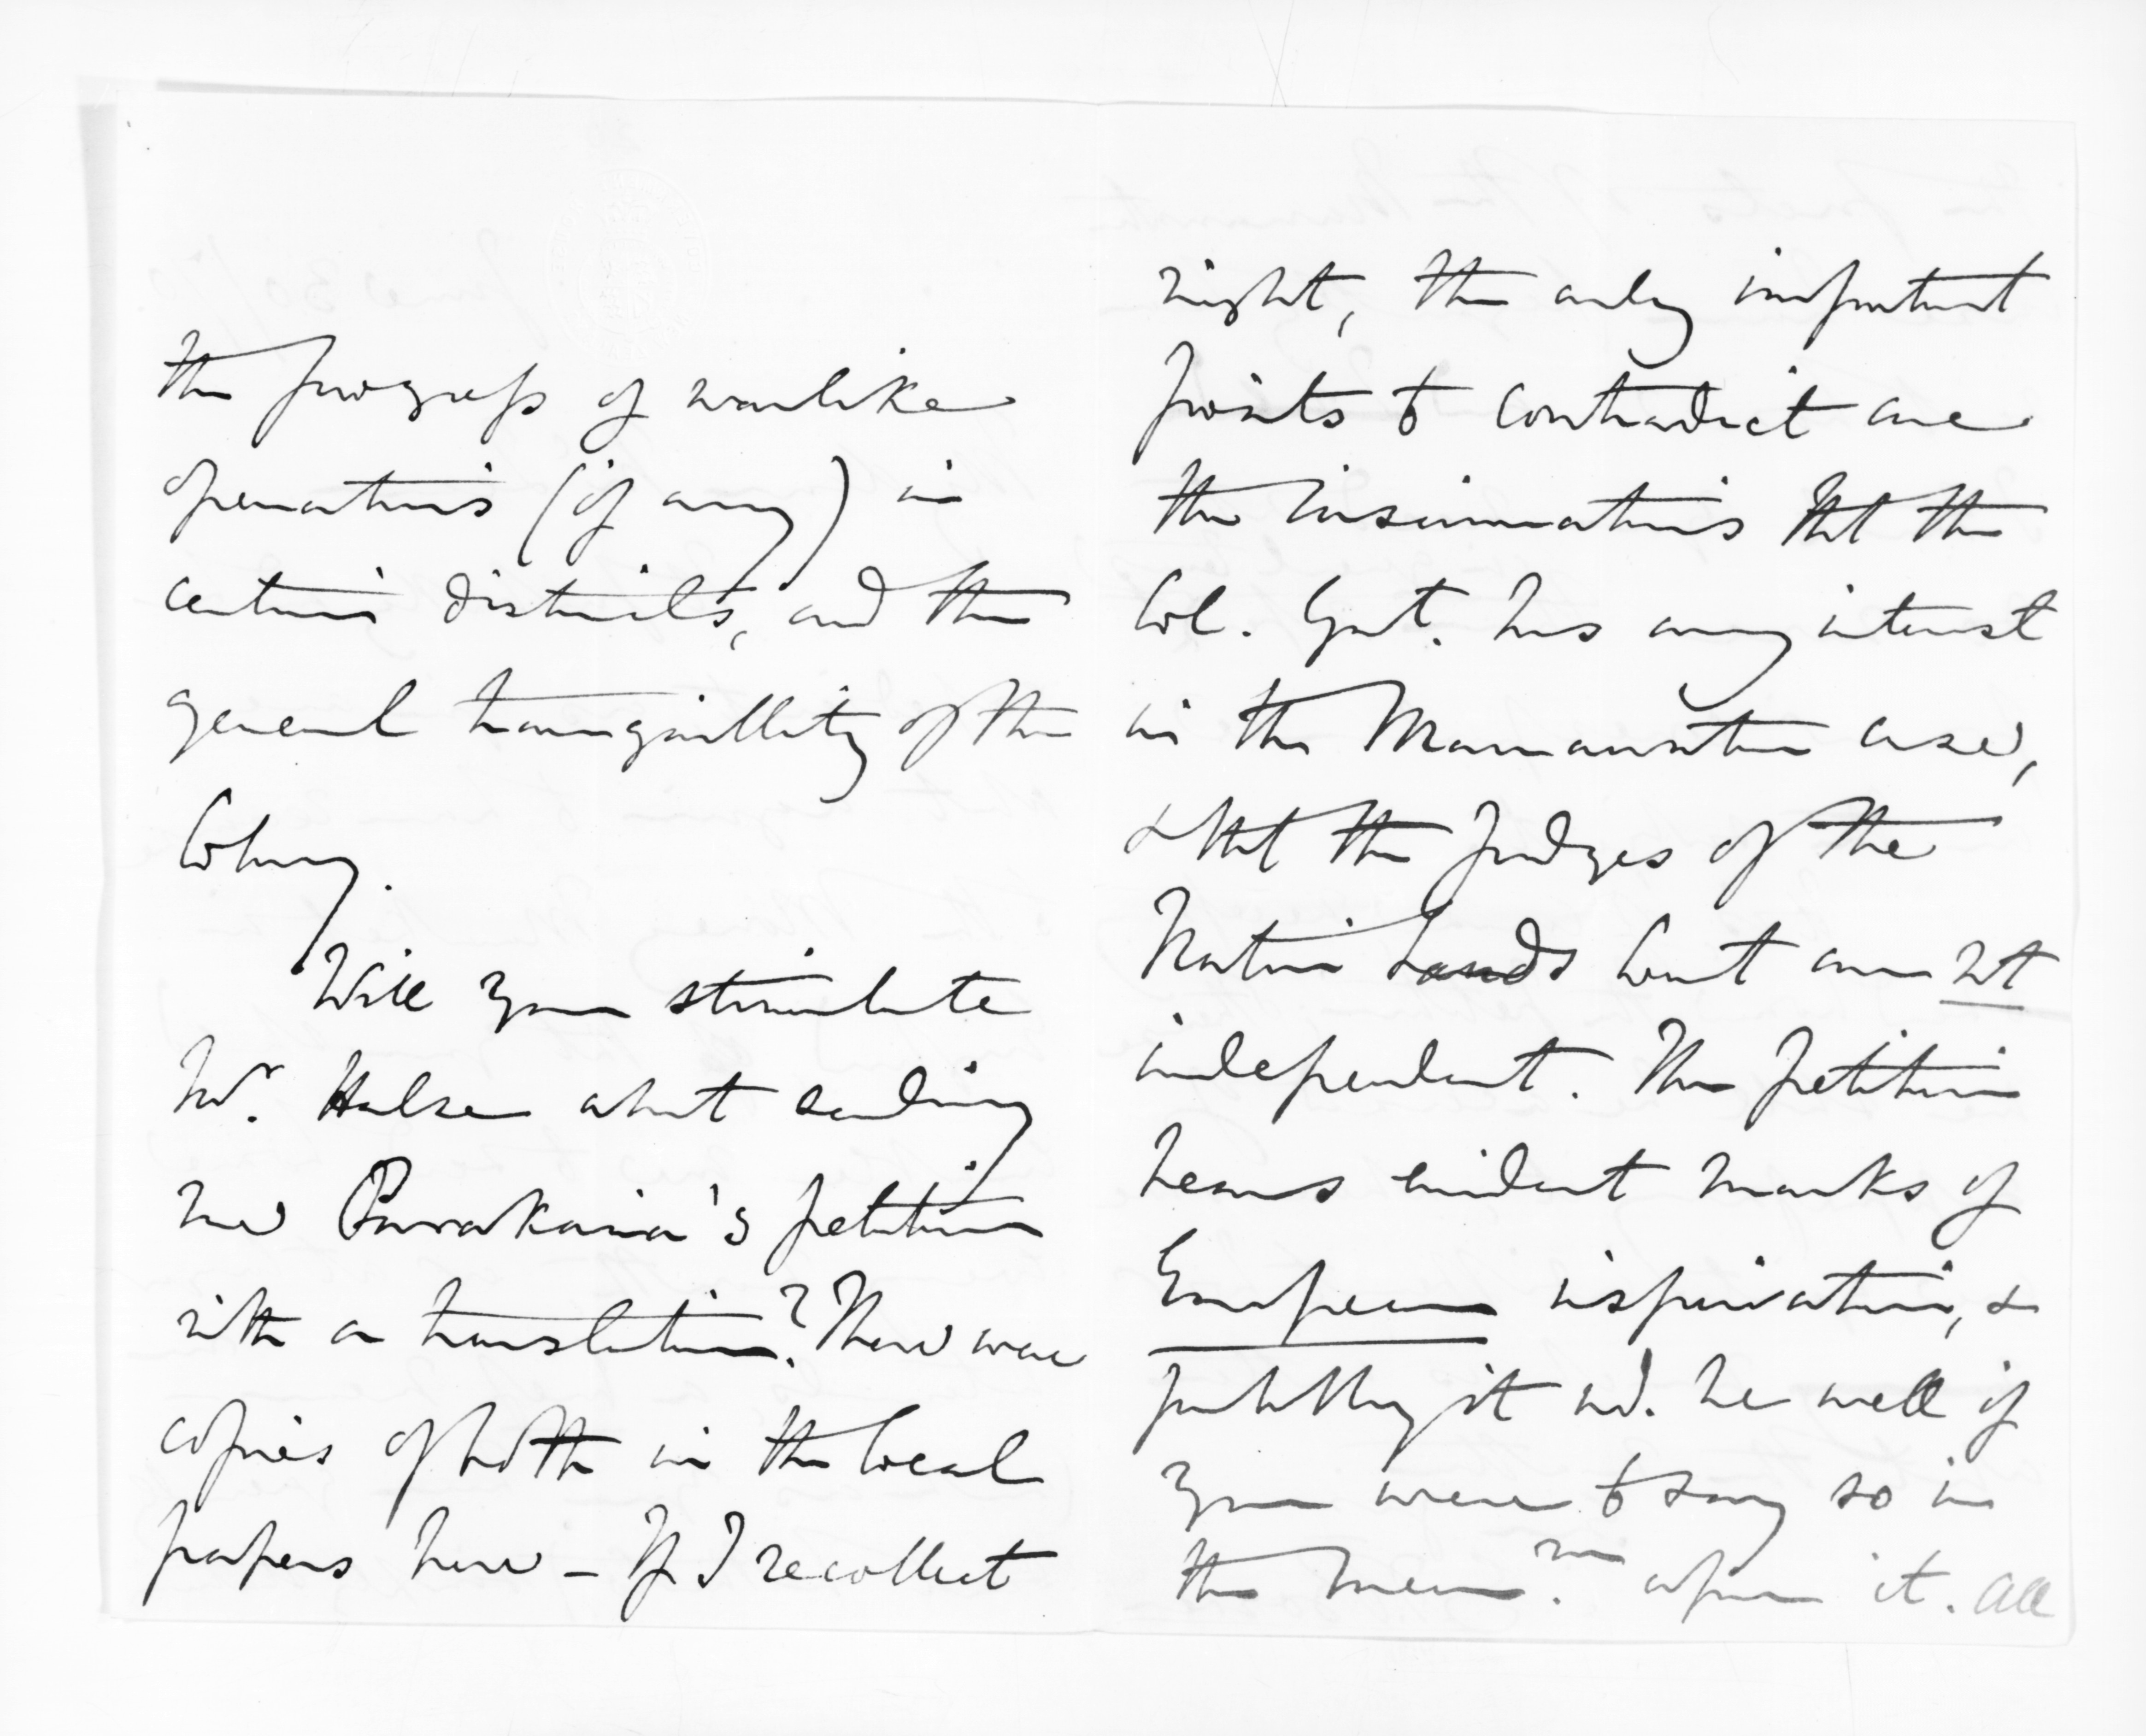 the progress of warlike
operations (if any) in
certain districts, and the
general tranquillity of the
Colony.
Will you stimulate
Mr. Halse about sending
me Parakaia's petition
with a translation? There were
copies of both in the local
papers here – If I recollect
right, the only important
points to contradict are
the insinuations tht the
Col. Govt. has any interest
in the Manawatu case,
& tht the Judges of the
Native Lands Court are not
independent. The petition
bears evident marks of
European inspiration, &
probably it wd. be well if
you were to say so in
the mem.m upon it. All